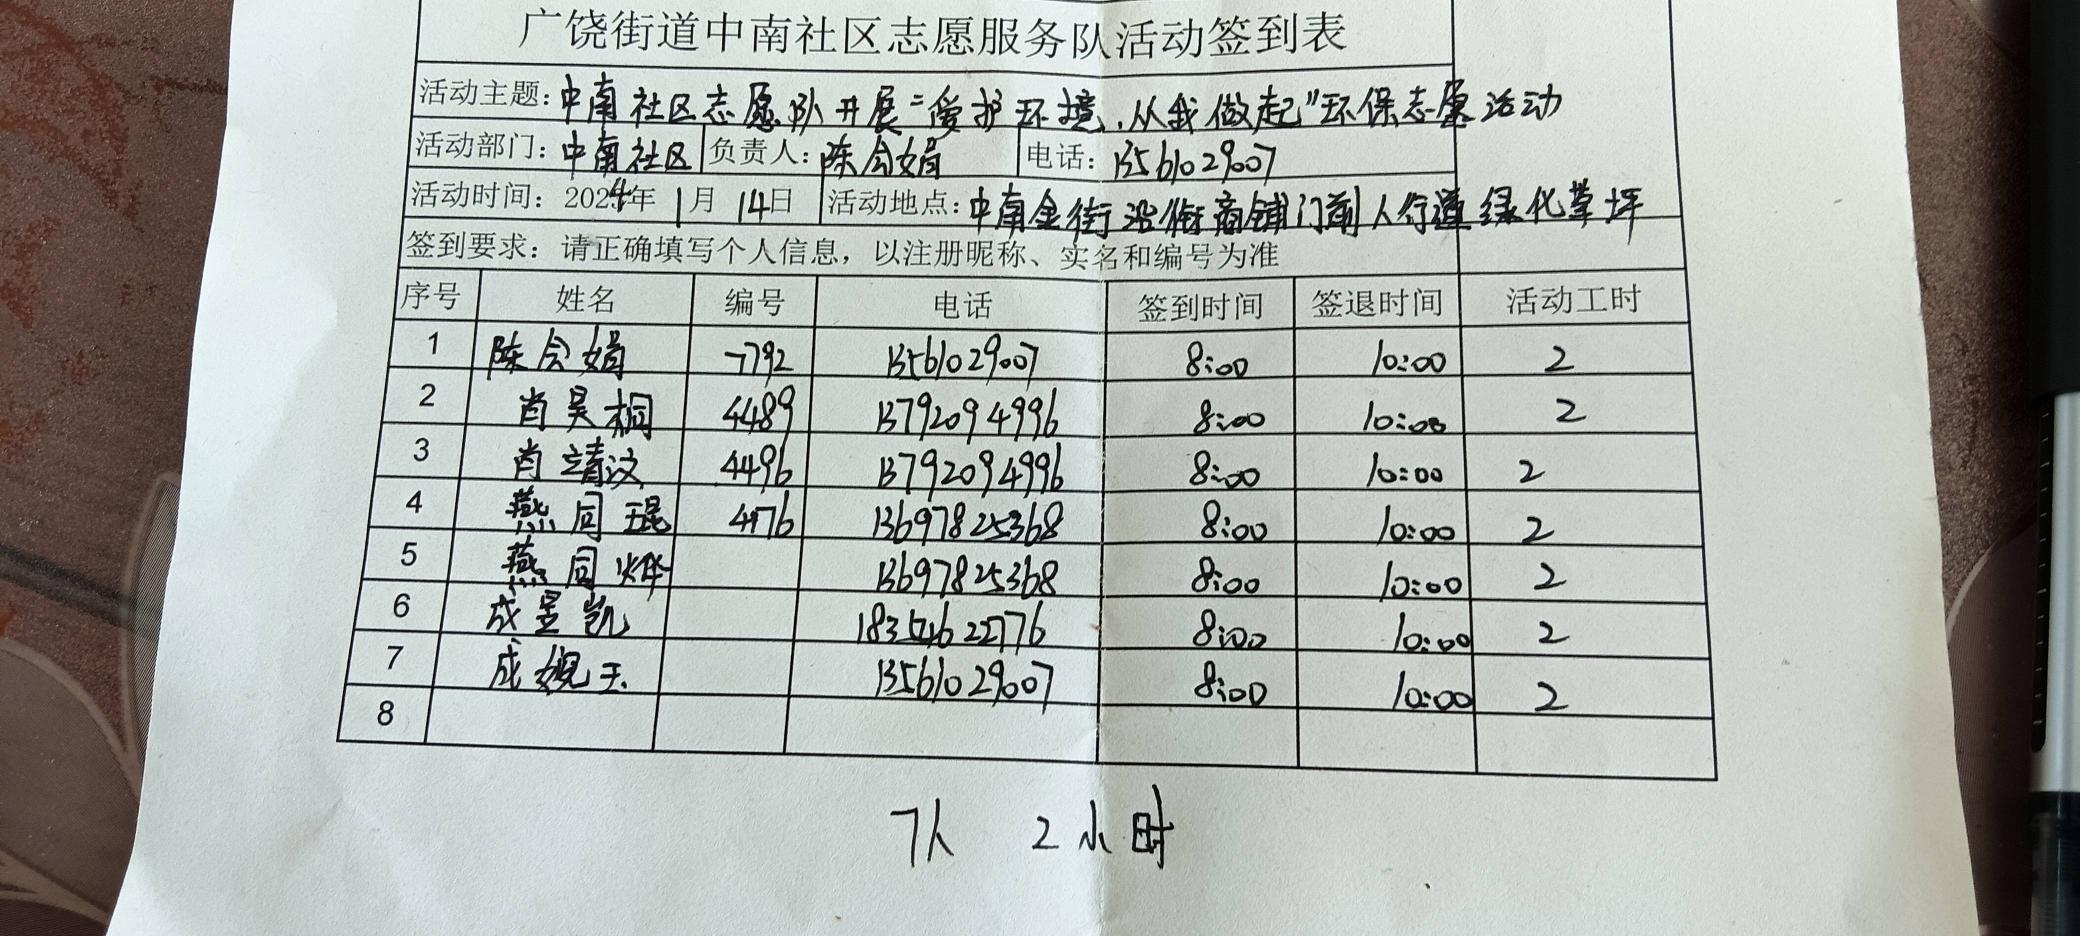 广饶街道中南社区志愿服务队活动签到表
活动主题：中南社区志愿队开展“爱护环境，从我做起”环保志愿活动
活动部门：中南社区 负责人：陈会娟 电话：13561029007
活动时间：2024年1月14日 活动地点：中南金街沿街商铺门前人行道绿化草坪
签到要求：请正确填写个人信息，以注册昵称、实名和编号为准
序号 姓名 编号 电话 签到时间 签退时间 活动工时
1 陈会娟 7792 13561029007 8:00 10:00 2
2 肖昊桐 4489 13792094996 8:00 10:00 2
3 肖靖汶 4496 13792094996 8:00 10:00 2
4 燕同琨 4476 13697825368 8:00 10:00 2
5 燕同烨 13697825368 8:00 10:00 2
6 成昱凯 18354622776 8:00 10:00 2
7 成婗玉 13561029007 8:00 10:00 2
8
7人 2小时